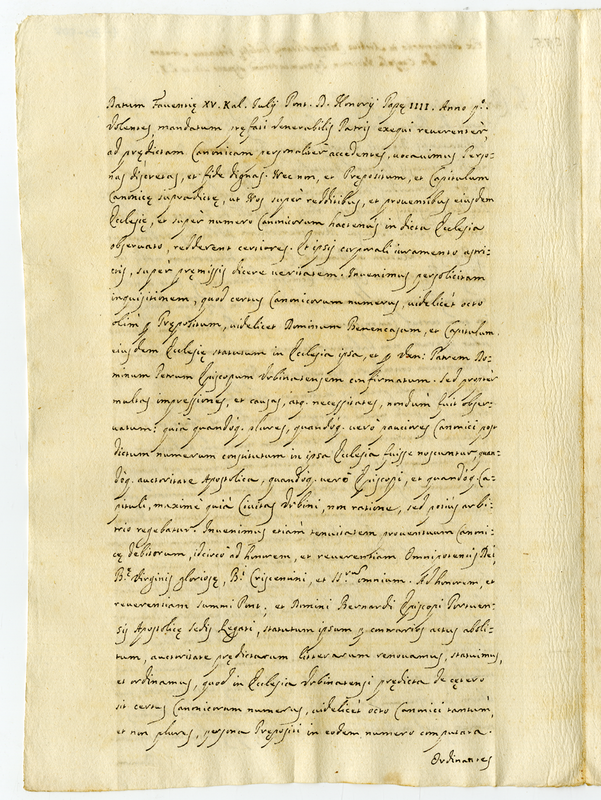 Datum Faventię XV. Kal. Julij Pont. D. Honorij Papę IIII. Anno p.º
Volentes mandatum pręfati Venerabilis Patris exequi reverenter,
ad prędictam Canonicam personaliter accedentes, uocauimus Perso-
nas discretas, et fide dignas. Nec non, et Prępositum, et Capitulum
Canonicę supradictę, ut Nos super redditibus, et prouentibus eiusdem
Ecclesię, et super numero Canonicorum hactenus in dicta Ecclesia
obseruato, redderent certiores. Et ipsis corporali iuramento astri-
ctis, super pręmissis dicere ueritatem. Inuenimus per solicitam
inquisitionem, quod certus Canonicorum numerus, uidelicet octo
olim p Prępositum, uidelicet Dominum Benencasam, et Capitulum
eiusdem Ecclesię statutum in Ecclesia ipsa, et p Ven: Patrem Do-
minum Petrum Episcopum Vrbinatensem confirmatum. Sed propter
multas impressiones, et causas, atq. necessitates, nondum fuit obser-
uatum: quia quandoq. plures, quandoq. uero pauciores Canonici post
dictum numerum constitutum in ipsa Ecclesia fuisse noscuntur, quan-
doq. auctoritate Apostolica, quandoq. uerò Episcopi, et quandoq. Ca-
pituli, maxime quia Ciuitas Vrbini, non ratione, sed potius arbi-
trio regebatur. Inuenimus etiam tenuitatem prouentuum Canoni-
cę debitorum, idcirco ad honorem, et reuerentiam Omnipotentis Dei,
B.ę Virginis gloriosę, B.i Criscentini, et SS.rum omnium. Ad honorem, et
reuerentiam summi Pont. et Domini Bernardi Episcopi Portuen-
sis Apostolicę Sedis Legati, statutum ipsum p contrarios actus aboli-
tum, auctoritate prędictarum litterarum renouamus, statuimus,
et ordinamus, quod in Ecclesia Vrbinatensi prędicta de cętero
sit certus Canonicorum numerus, uidelicet octo Canonici tantum,
et non plures, persona Pręposíti in eodem numero computata.
Ordinantes